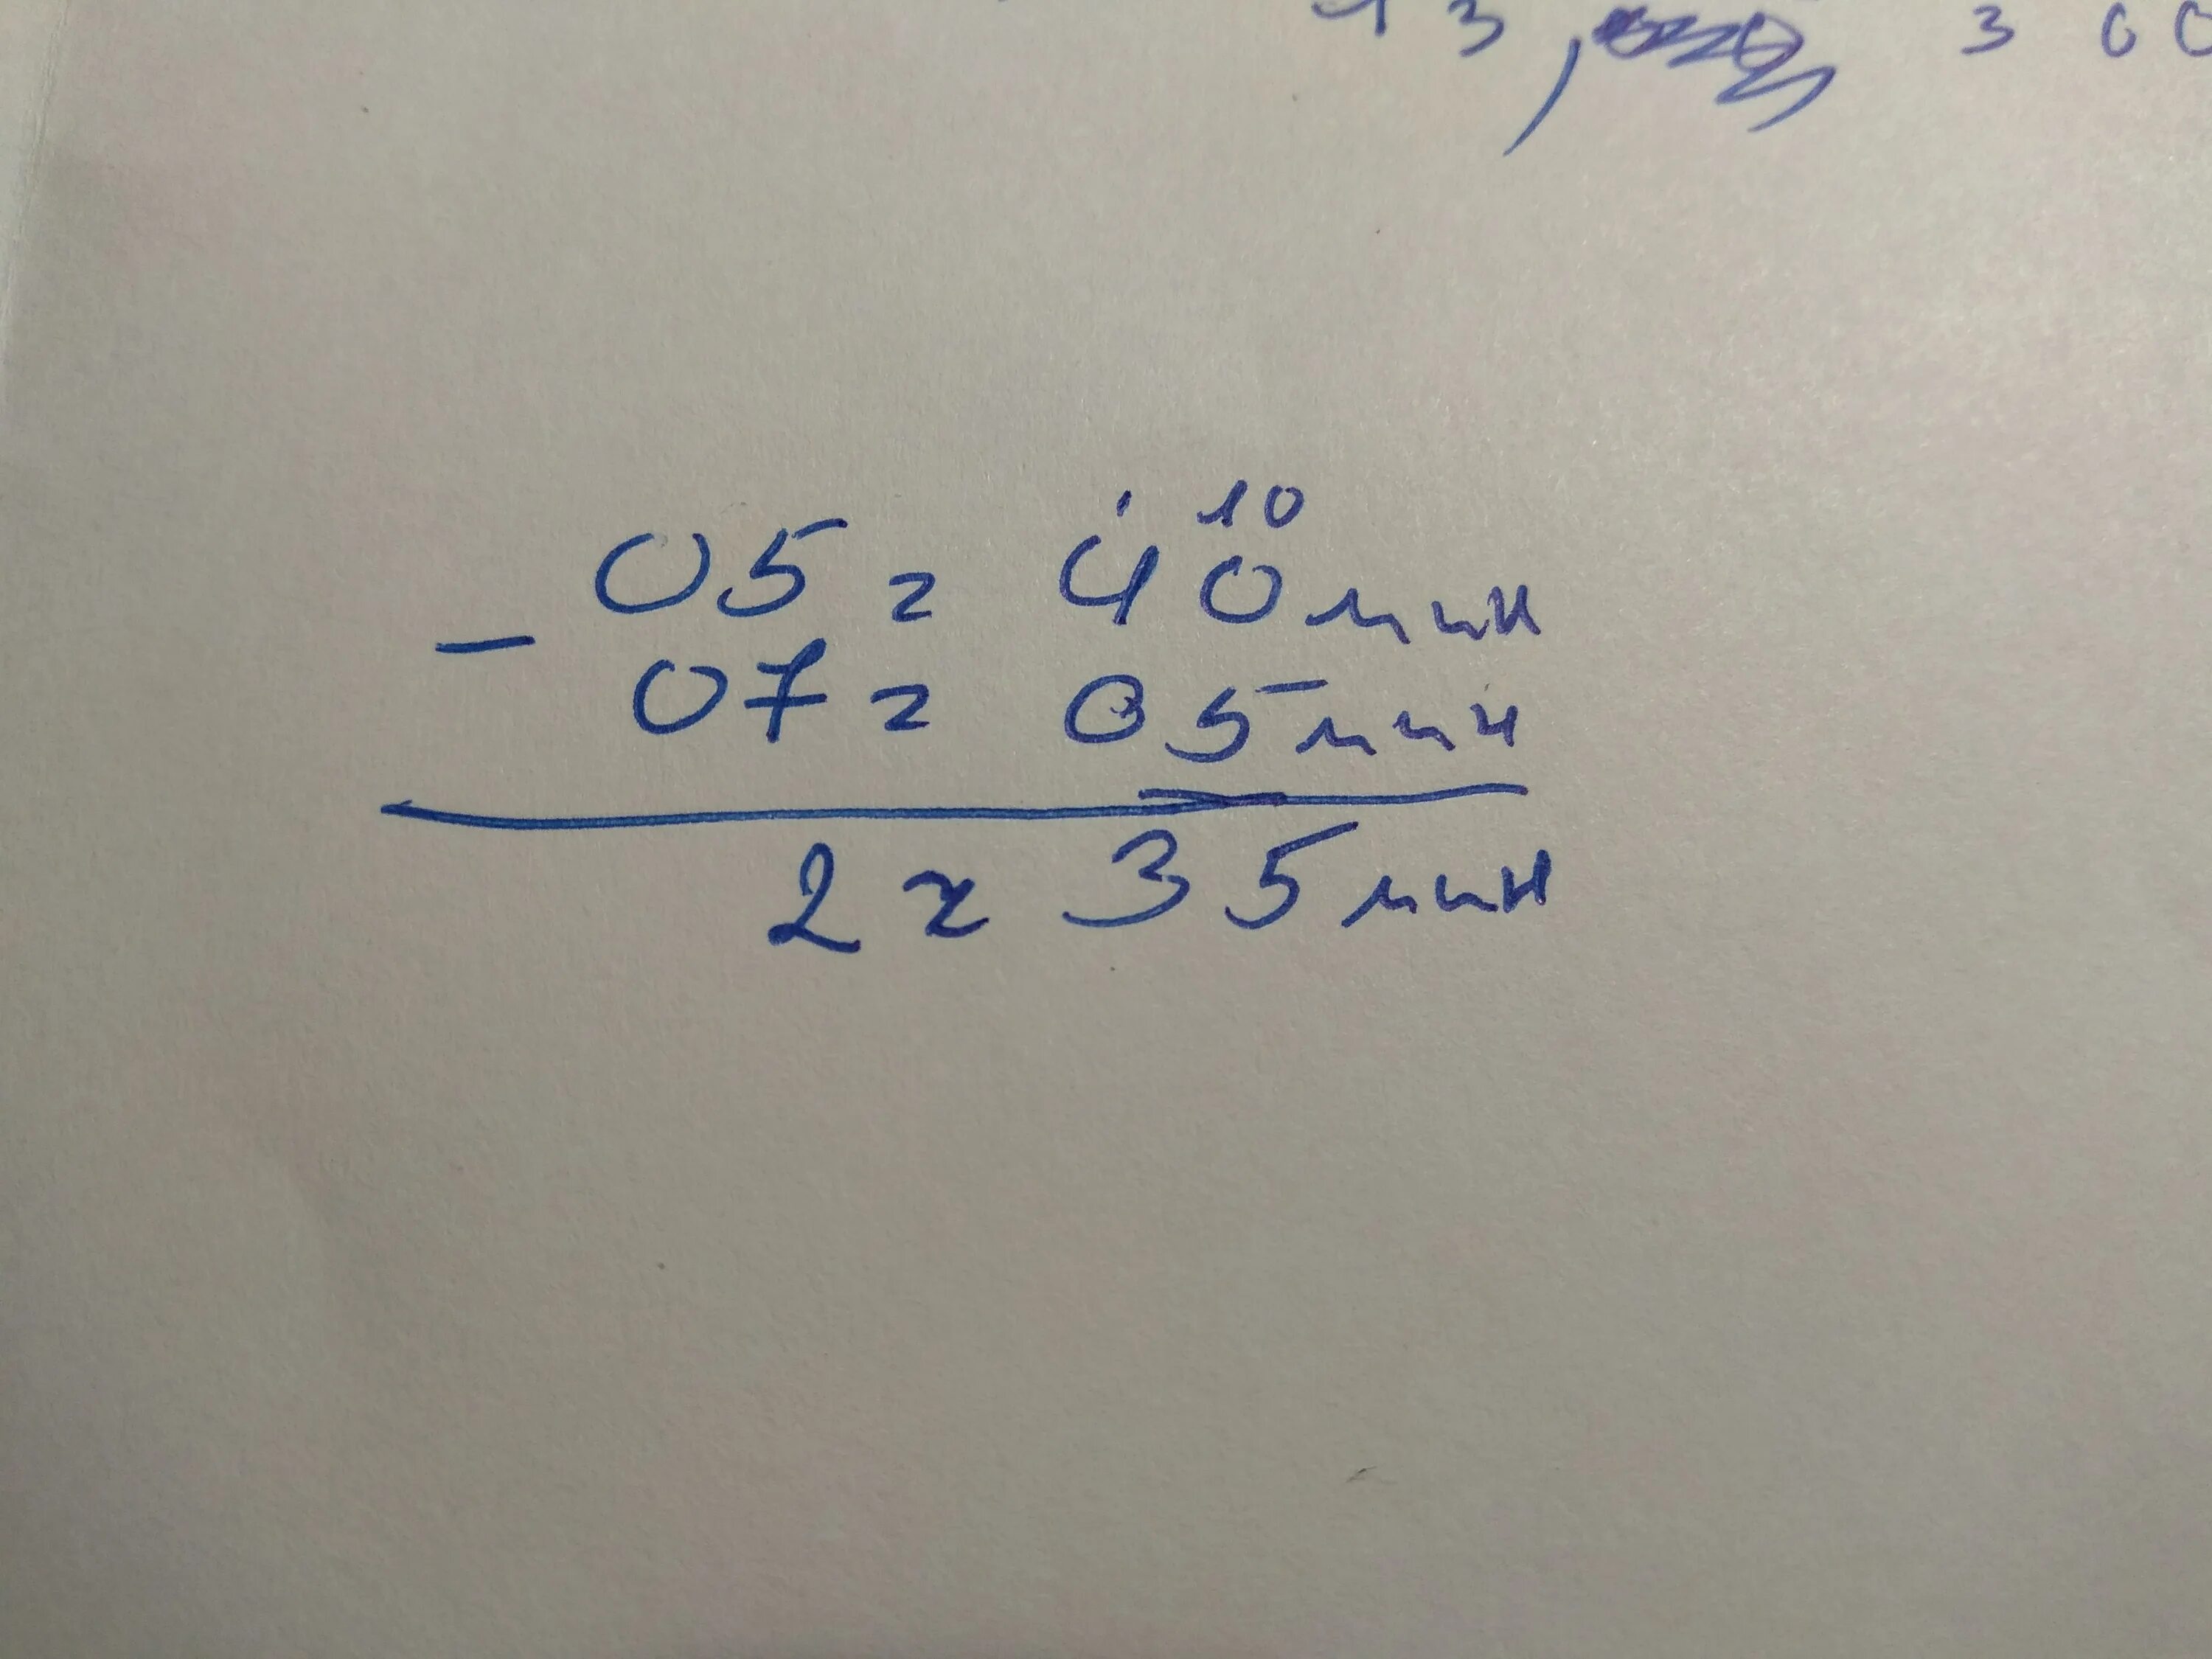 43, 3 00
10
05 г 40 мин
-
07 г 05 мин
2 г 35 мин